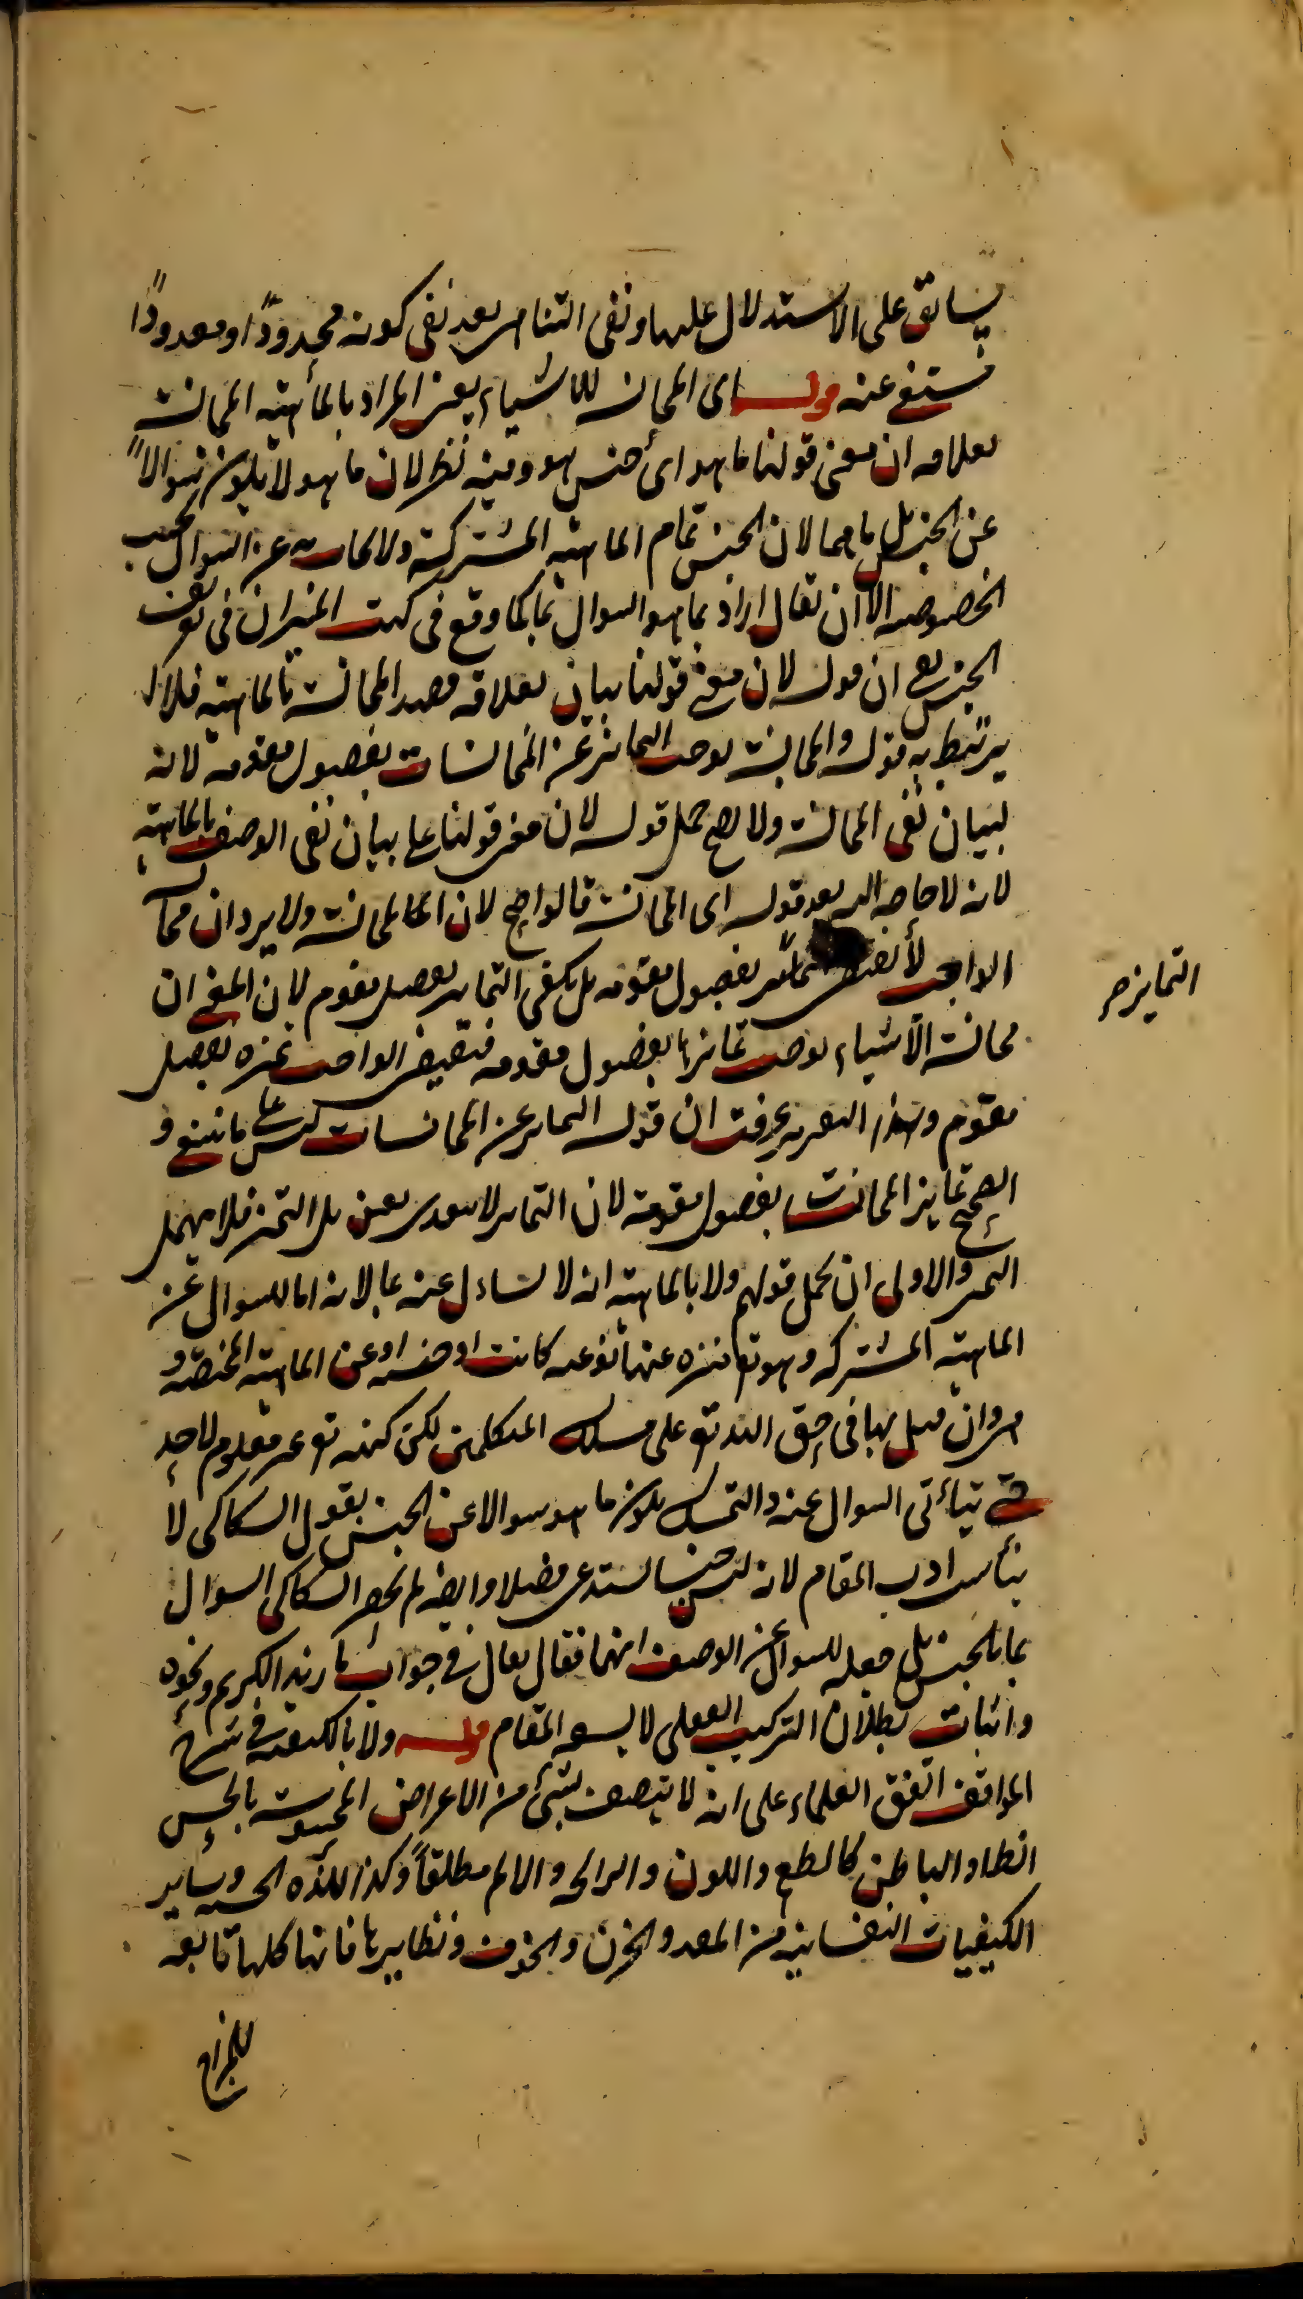 يساق على الاستدلال عليها ونفى التناهى بعد نفى كونه محدودًا او معدودًا
مستغنى عنه قوله اى المجانسة للاشياء يعنى المراد بالمأهية المجانسة
بعلاقة ان معنى قولنا ما هو اى جنس هو وفيه نظر لان ما هو لا يكون سوالاً
عن الجنس بل ما هما لان الجنس تمام الماهية المشتركة ولا عن السوال بحسب
الخصوصية الا ان يقال اراد بما هو السوال بما كما وقع فى كتب الميزان فى تعريف
الجنس بقى ان قوله لان معنى قولنا بيان لعلاقة قصد المجانسة بالماهية فلا
يرتبط به قوله والمجانسة توجب التمايز عن المجانسات بفصول مقومة لانه
لبيان نفى المجانسة ولا يصح حمل قوله لان معنى قولنا على بيان نفى الوصف بالماهية
لانه لا حاجة اليه بعد قوله اى المجانسة فالواضح لان المجانسة ولا يرد ان مجانسة
الواجب لا تقتضى بفصول مقومة بل يكفى التمايز بفصل مقوم لان المعنى ان
التمايز صح
مجانسة الأشياء توجب تمايزها بفصول مقومة فتقتضى الواجب تميزه بفصل
مقوم وبهذا التقرير عرفت ان قوله التمايز عن المجانسات ليس على ما ينبغى و
الصحيح تمايز المجانسات بفصول مقومة لان التمايز لا يتعدى بعن بل التميز فلا تهمل
التميز والاولى ان يحمل قولهم ولا بالماهية انه لا تساءل عنه بما لانه اما للسوال عن
الماهية المشتركة وهو تع منزه عنها نوعية كانت او جنسية او عن الماهية المختصة و
هى وان قيل بها فى حق الله تع على مسلك المتكلمين لكن كنهه تع غير معلوم لاحد
حتى يتأتى السوال عنه والتمسك بكون ما هو سوالا عن الجنس بقول السكاكى لا
يناسب ادب المقام لانه ليس جنسا يستدعى فصلا وايضا لم يحصر السكاكى السوال
بما بالجنس بل جعله للسوال عن الوصف ايضا فقال يقال فى جواب ما زيد الكريم ونحوه
واثبات بطلان التركيب العقلى لا يسعه المقام قوله ولا بالكيفية فى شرح
المواقف اتفق العلماء على انه لا يتصف بشئ من الاعراض المحسوسة بالحس
الظاهر والباطن كالطعم واللون والرائحة والالم مطلقاً وكذا اللذة الحسية وساير
الكيفيات النفسانية من الحقد والحزن والخوف ونظايرها فانها كلها تابعة
للمزاج